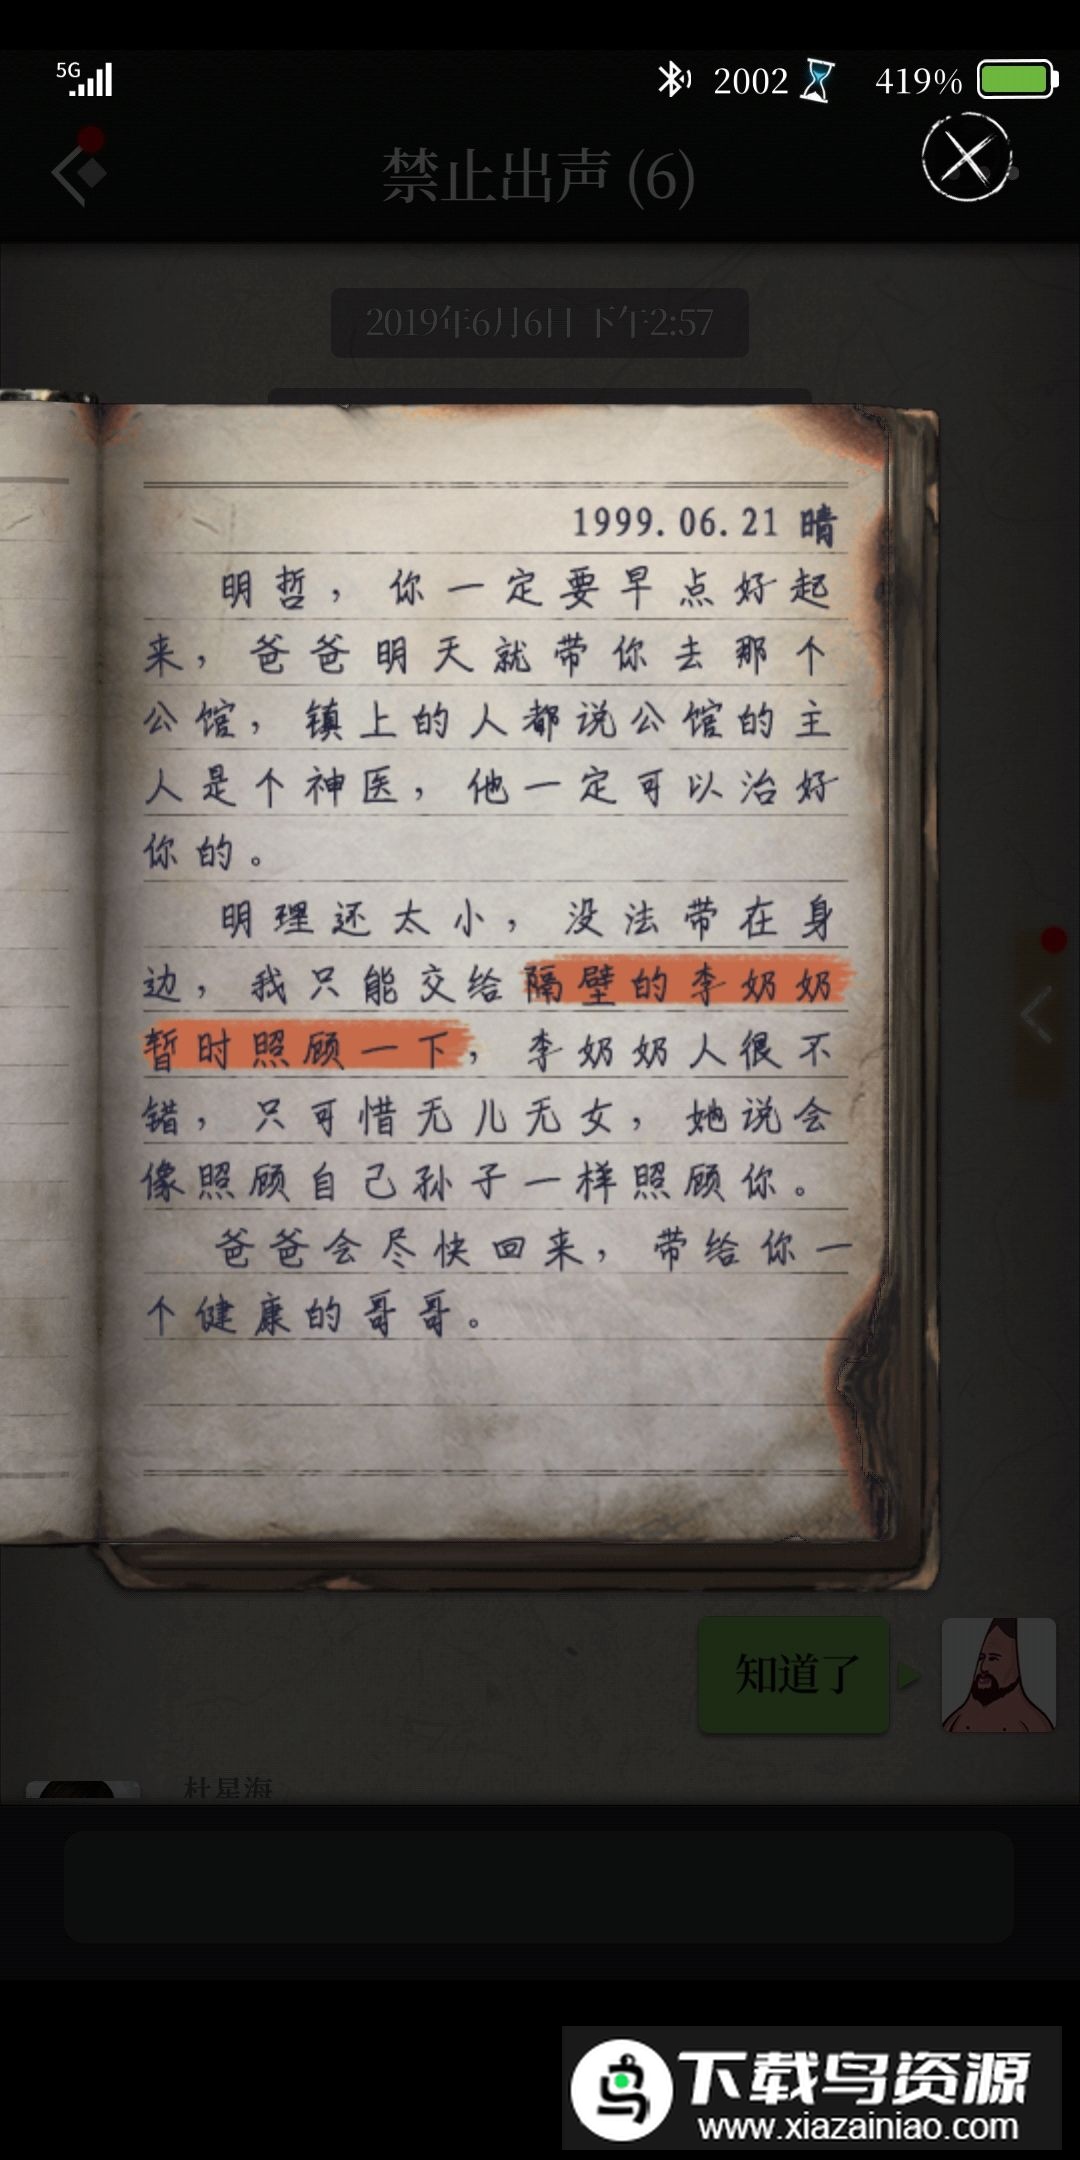 5G
2002
419%
禁止出声 (6)
2019年6月6日 下午2:57
1999.06.21 晴
明哲，你一定要早点好起
来，爸爸明天就带你去那个
公馆，镇上的人都说公馆的主
人是个神医，他一定可以治好
你的。
明理还太小，没法带在身
边，我只能交给隔壁的李奶奶
暂时照顾一下，李奶奶人很不
错，只可惜无儿无女，她说会
像照顾自己孙子一样照顾你。
爸爸会尽快回来，带给你一
个健康的哥哥。
知道了
杜星海
下载鸟资源
www.xiazainiao.com